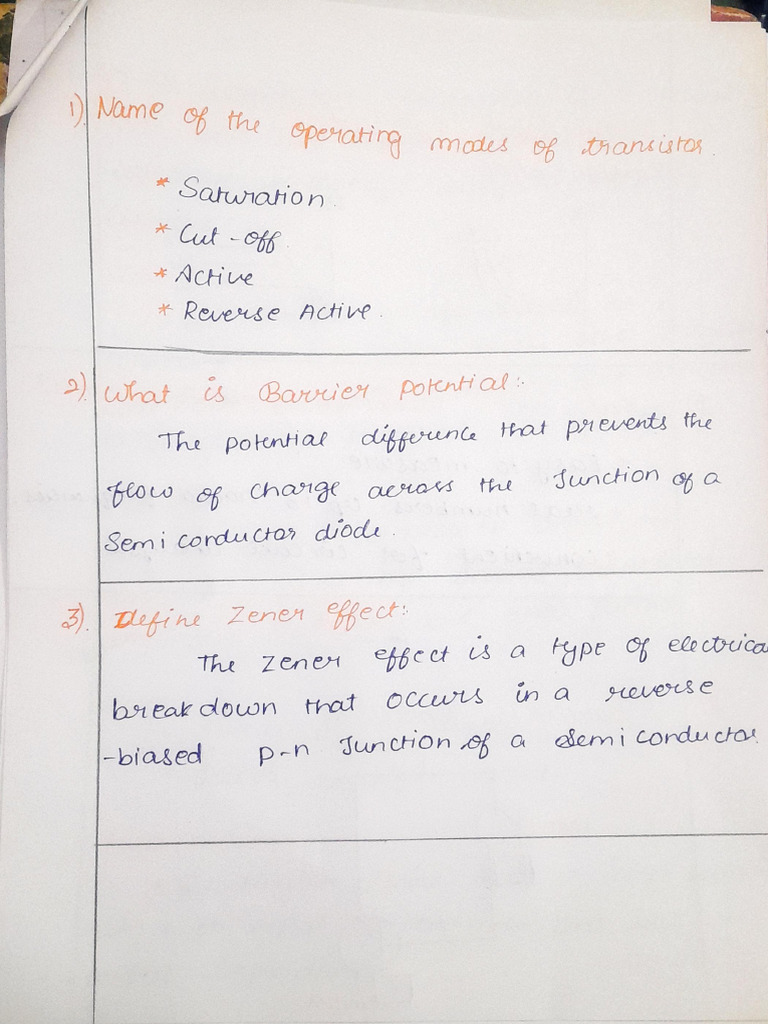 1). Name of the operating modes of transistor.
* Saturation.
* Cut-off.
* Active
* Reverse Active.
2). What is Barrier potential:-
The potential difference that prevents the
flow of charge across the Junction of a
Semi conductor diode.
3). Define Zener effect:-
The Zener effect is a type of electrica
breakdown that occurs in a reverse
-biased p-n Junction of a Semi conductor.